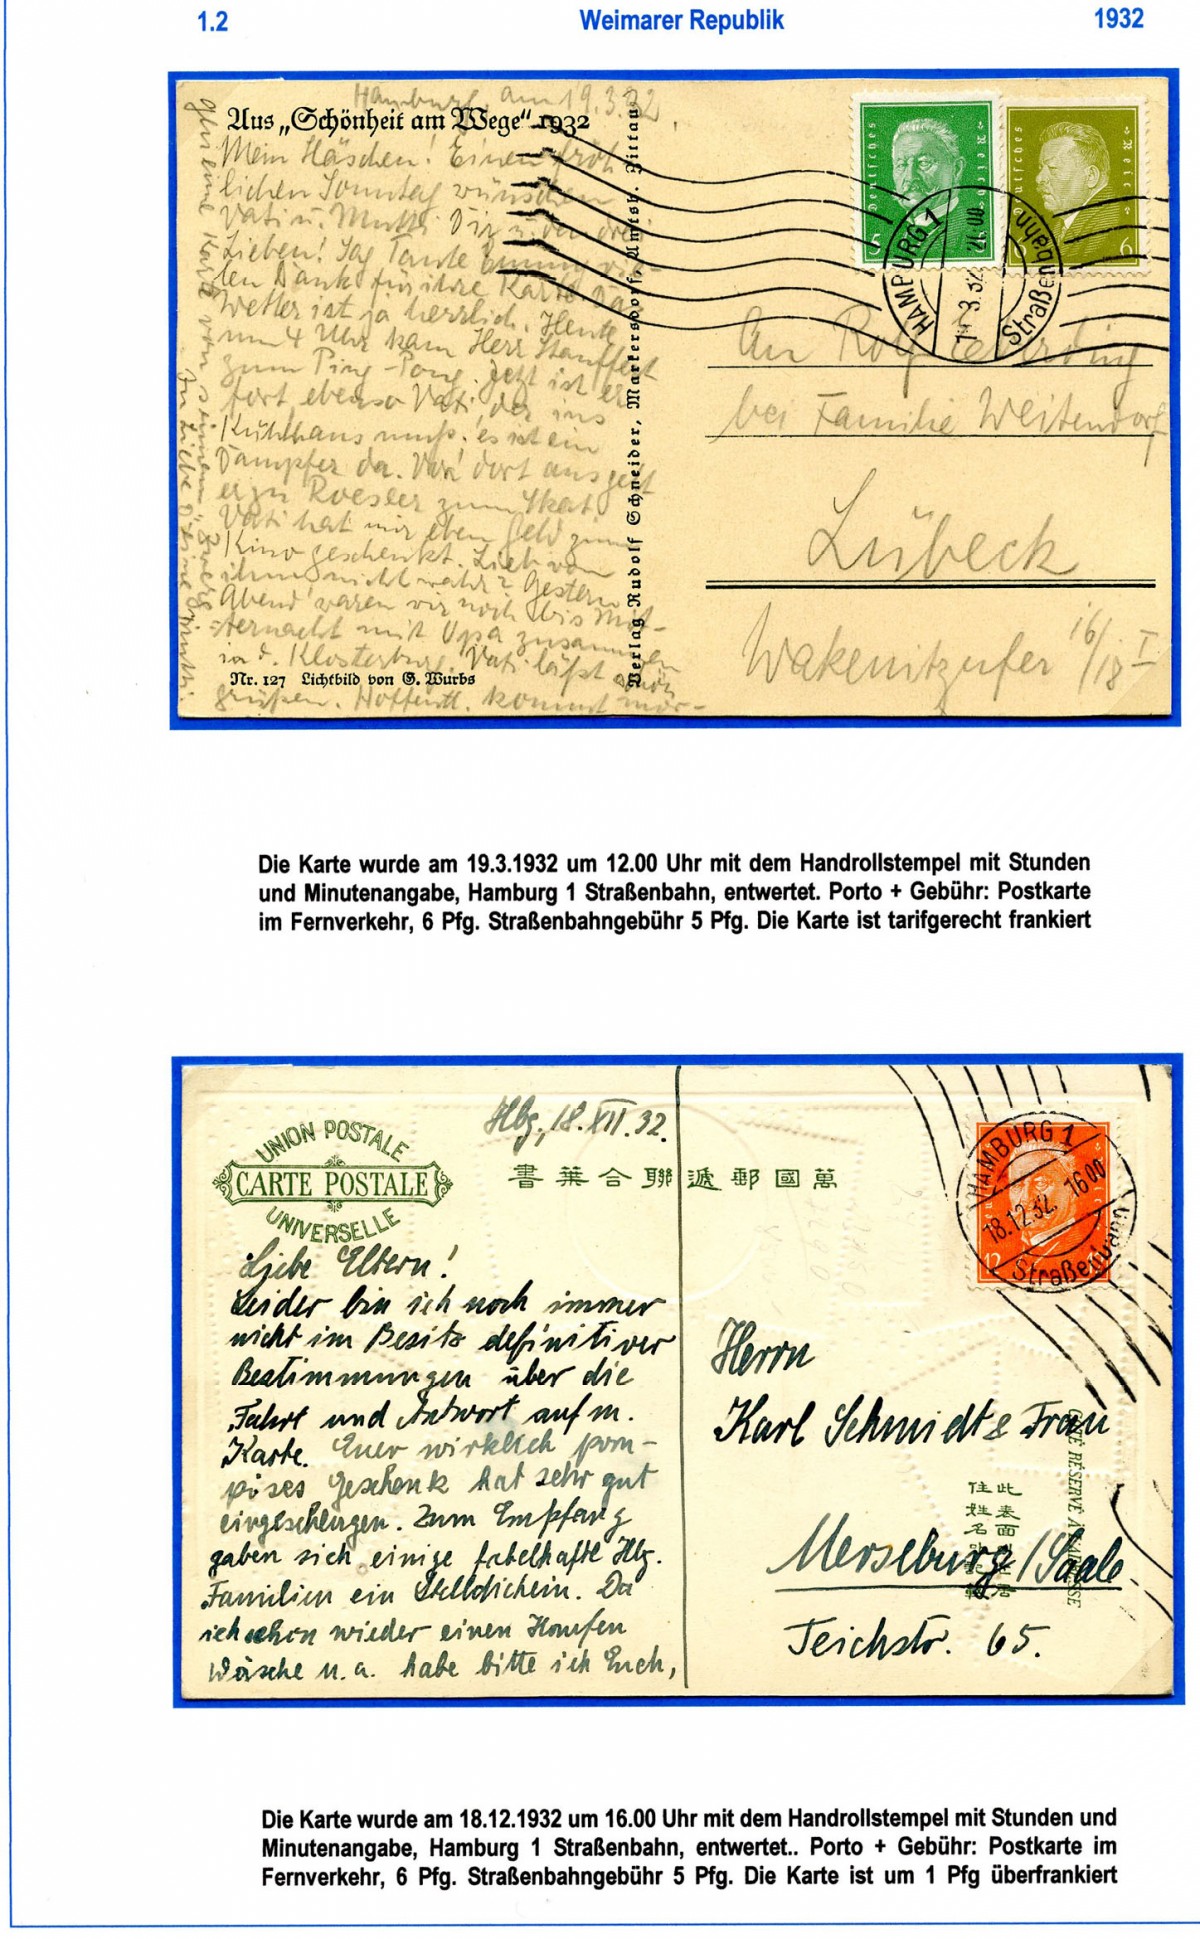 1.2
Weimarer Republik
1932
Hamburg, am 19.3.32
Aus „Schönheit am Wege“ 1932
Mein Häschen! Einen fröh
lichen Sonntag wünschen
Vati u. Mutti Dir u. den drei
Lieben! Sag Tante Emmy vie-
len Dank für ihre Karte. Das
Wetter ist ja herrlich. Heute
um 4 Uhr kam Herr Stauffert
zum Ping-Pong. Jetzt ist er
fort, ebenso Vati, der ins
Kühlhaus muß. es ist ein
Dampfer da. Von dort aus geht
er zu Roesler zum Skat
Vati hat mir eben Geld zum
Kino geschenkt. Lieb von
ihm, nicht wahr? Gestern
Abend waren wir noch bis Mit-
ternacht mit Opa zusammen
in d. Klosterburg. Vati läßt schön
Nr. 127 Lichtbild von G. Wurbs
grüßen. Hoffentl. kommt mor-
gen eine Karte von
In Liebe Deine Mutti.
Verlag Rudolf Schneider, Markersdorf, Amtsh. Zittau
Deutsches Reich
5
Deutsches Reich
6 6
HAMBURG 1
3.32
Straßenbahn
An Rolf
bei Familie Weitendorf
Lübeck
Wakenitzufer 16/18 I
Die Karte wurde am 19.3.1932 um 12.00 Uhr mit dem Handrollstempel mit Stunden
und Minutenangabe, Hamburg 1 Straßenbahn, entwertet. Porto + Gebühr: Postkarte
im Fernverkehr, 6 Pfg. Straßenbahngebühr 5 Pfg. Die Karte ist tarifgerecht frankiert
UNION POSTALE
CARTE POSTALE
UNIVERSELLE
Hbg, 18. XII. 32.
書葉合聯 逓郵國萬
HAMBURG 1
18.12.32. 16 00
Straßenbahn
12
Liebe Eltern!
Leider bin ich noch immer
nicht im Besitz definitiver
Bestimmungen über die
Fahrt und Antwort auf m.
Karte. Euer wirklich pom-
pöses Geschenk hat sehr gut
eingeschlagen. Zum Empfang
gaben sich einige fabelhafte Hbg.
Familien ein Stelldichein. Da
ich schon wieder einen Haufen
Wäsche u. a. habe bitte ich Euch,
Herrn
Karl Schmidt & Frau
Merseburg/Saale
Teichstr. 65.
CÔTÉ RÉSERVÉ A L'ADRESSE
Die Karte wurde am 18.12.1932 um 16.00 Uhr mit dem Handrollstempel mit Stunden und
Minutenangabe, Hamburg 1 Straßenbahn, entwertet.. Porto + Gebühr: Postkarte im
Fernverkehr, 6 Pfg. Straßenbahngebühr 5 Pfg. Die Karte ist um 1 Pfg überfrankiert